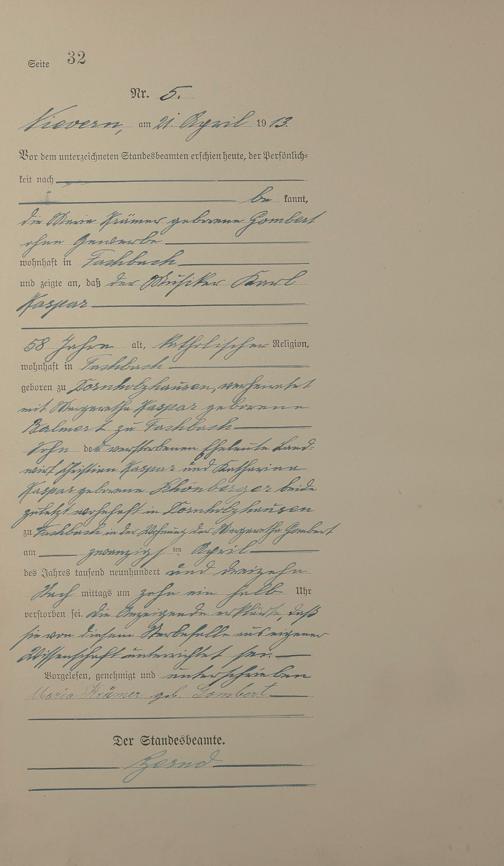 Seite 32
Nr. 5.
Nievern, am 21. April 1913.
Vor dem unterzeichneten Standesbeamten erschien heute, der Persönlich-
keit nach
be kannt,
die Maria Krämer geborene Gombert
ohne Gewerbe
wohnhaft in Fachbach
und zeigte an, daß der Musiker Karl
Kaspar
58 Jahre alt, katholischer Religion,
wohnhaft in Fachbach
geboren zu Dornholzhausen, verheiratet
mit Margaretha Kaspar geborene
zu Fachbach
Sohn der verstorbenen Eheleute Land-
wirt Christian Kaspar und Katharina
Kaspar geborene Schönberger beide
zuletzt wohnhaft in Dornholzhausen
zu Fachbach in der Wohnung der Margaretha Gombert
am zwanzigsten April
des Jahres tausend neunhundert und dreizehn
Nach mittags um zehn ein halb Uhr
verstorben sei. Die Anzeigende erklärte, daß
sie von diesem Sterbefalle aus eigener
Wissenschaft unterrichtet sei.
Vorgelesen, genehmigt und unterschrieben
Maria Krämer geb. Gombert
Der Standesbeamte.